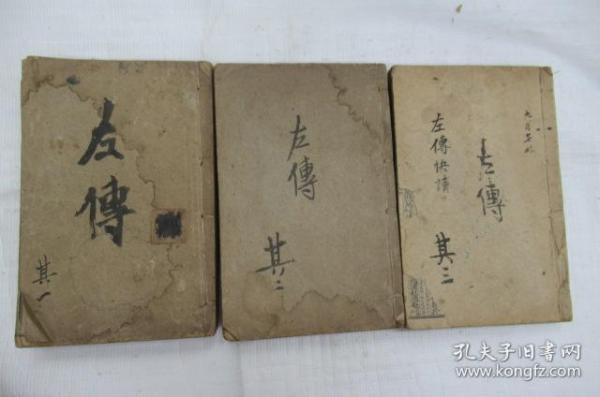 左傳
其一
左傳
其二
左傳快讀
左傳
其三
孔夫子旧书网
www.kongfz.com